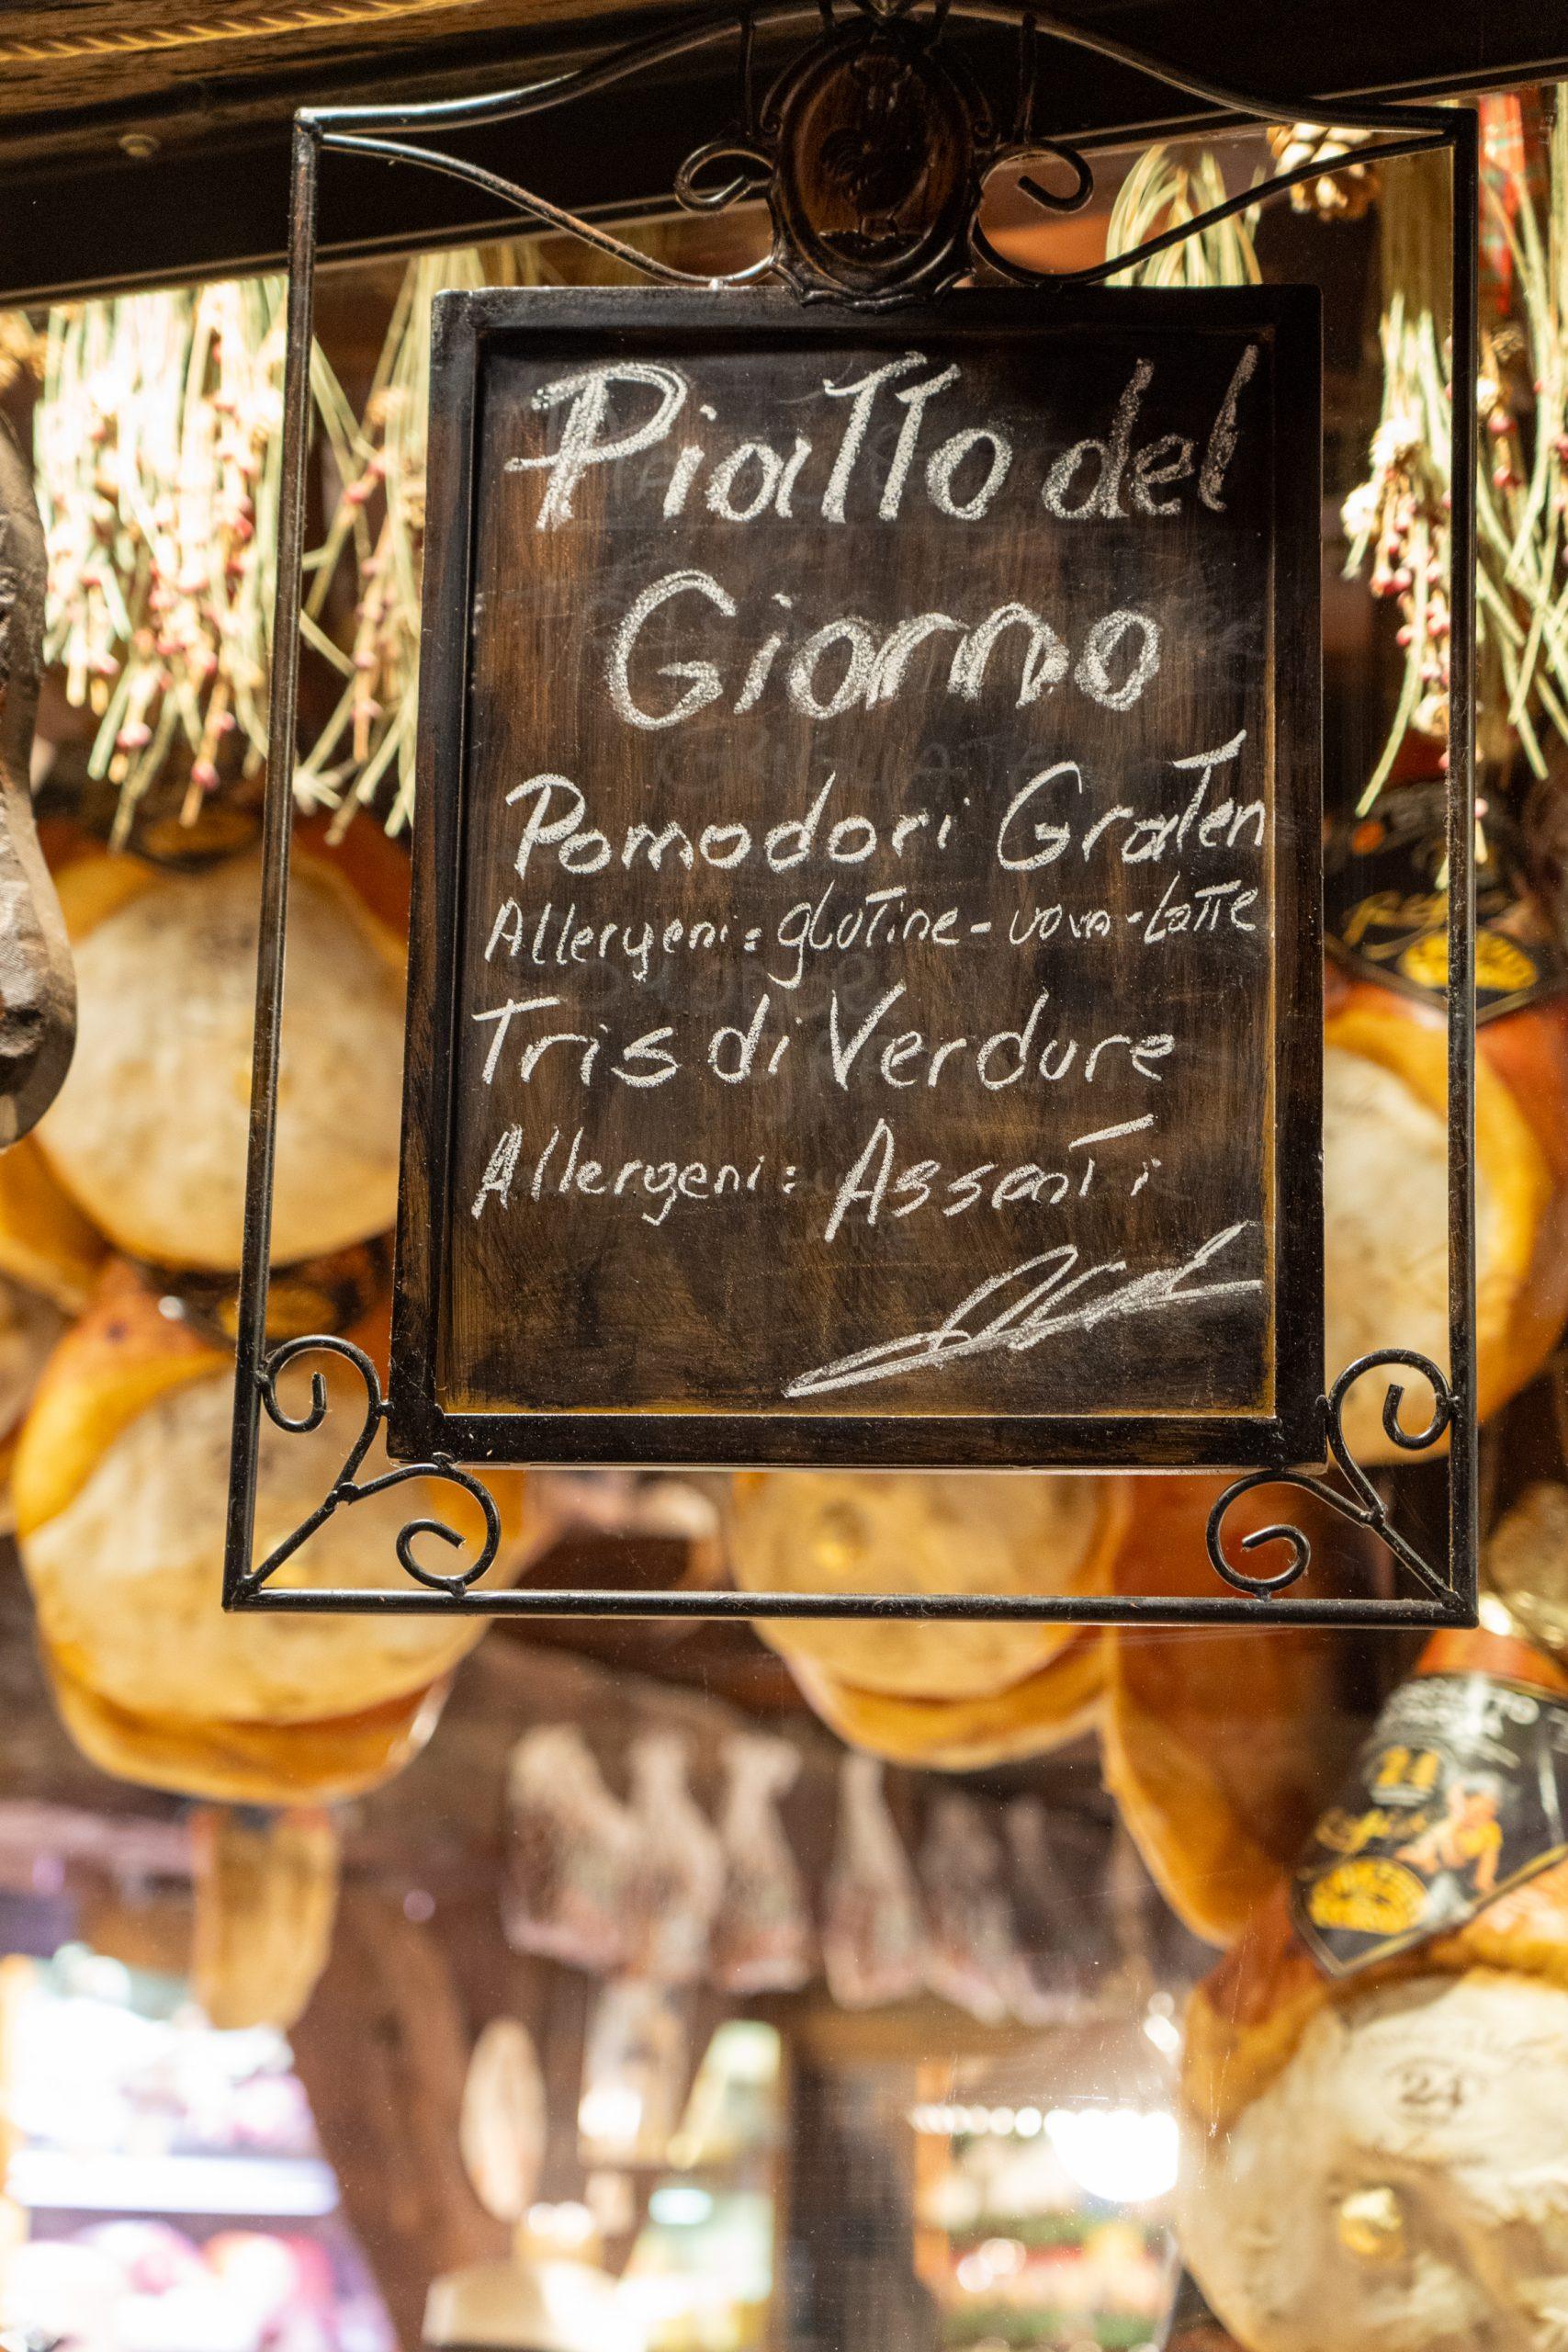 Piatto del
Giorno
Pomodori Graten
Allergeni: glutine - uova - Latte
Tris di Verdure
Allergeni: Assenti
21
24